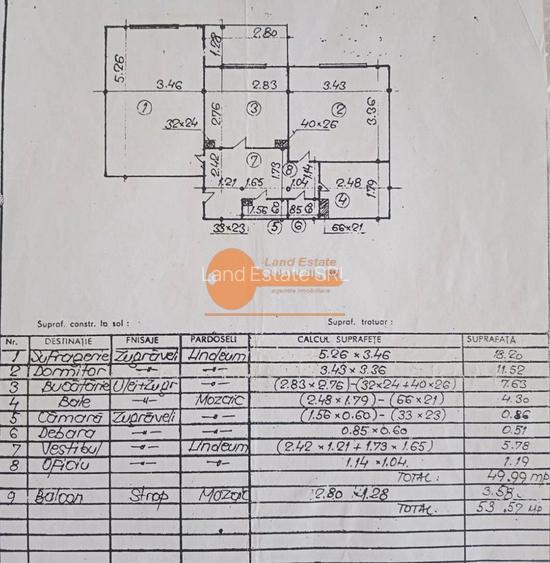 2.80
1.28
5.26
3.46 2.83 3.43
1 3 2
2.76 3.36
32x24 40x26
2.42 7 1.73 8 1.14
1.21 1.65 1.04 2.48
4 1.79
1.56 60 85 60
33x23 5 6 66x21
Land Estate
Land Estate SRL
agentie imobiliara
Supraf. constr. la sol : Supraf. trotuar :
Nr. DESTINAȚIE FINISAJE PARDOSELI CALCUL SUPRAFEȚE SUPRAFAȚĂ
1 Sufragerie Zugrăveli Linoleum 5.26 x 3.46 18.20
2 Dormitor -"- -"- 3.43 x 3.36 11.52
3 Bucătărie Ulei+zugr -"- (2.83 x 2.76)-(32x24+40x26) 7.63
4 Baie -"- Mozaic (2.48 x 1.79)-(66x21) 4.30
5 Cămară Zugrăveli -"- (1.56 x 0.60)-(33x23) 0.86
6 Debara -"- -"- 0.85 x 0.60 0.51
7 Vestibul -"- Linoleum (2.42 x 1.21 + 1.73 x 1.65) 5.78
8 Oficiu -"- -"- 1.14 x 1.04. 1.19
TOTAL: 49.99 mp
9 Balcon Strop Mozaic 2.80 x 1.28 3.58
TOTAL: 53.57 mp